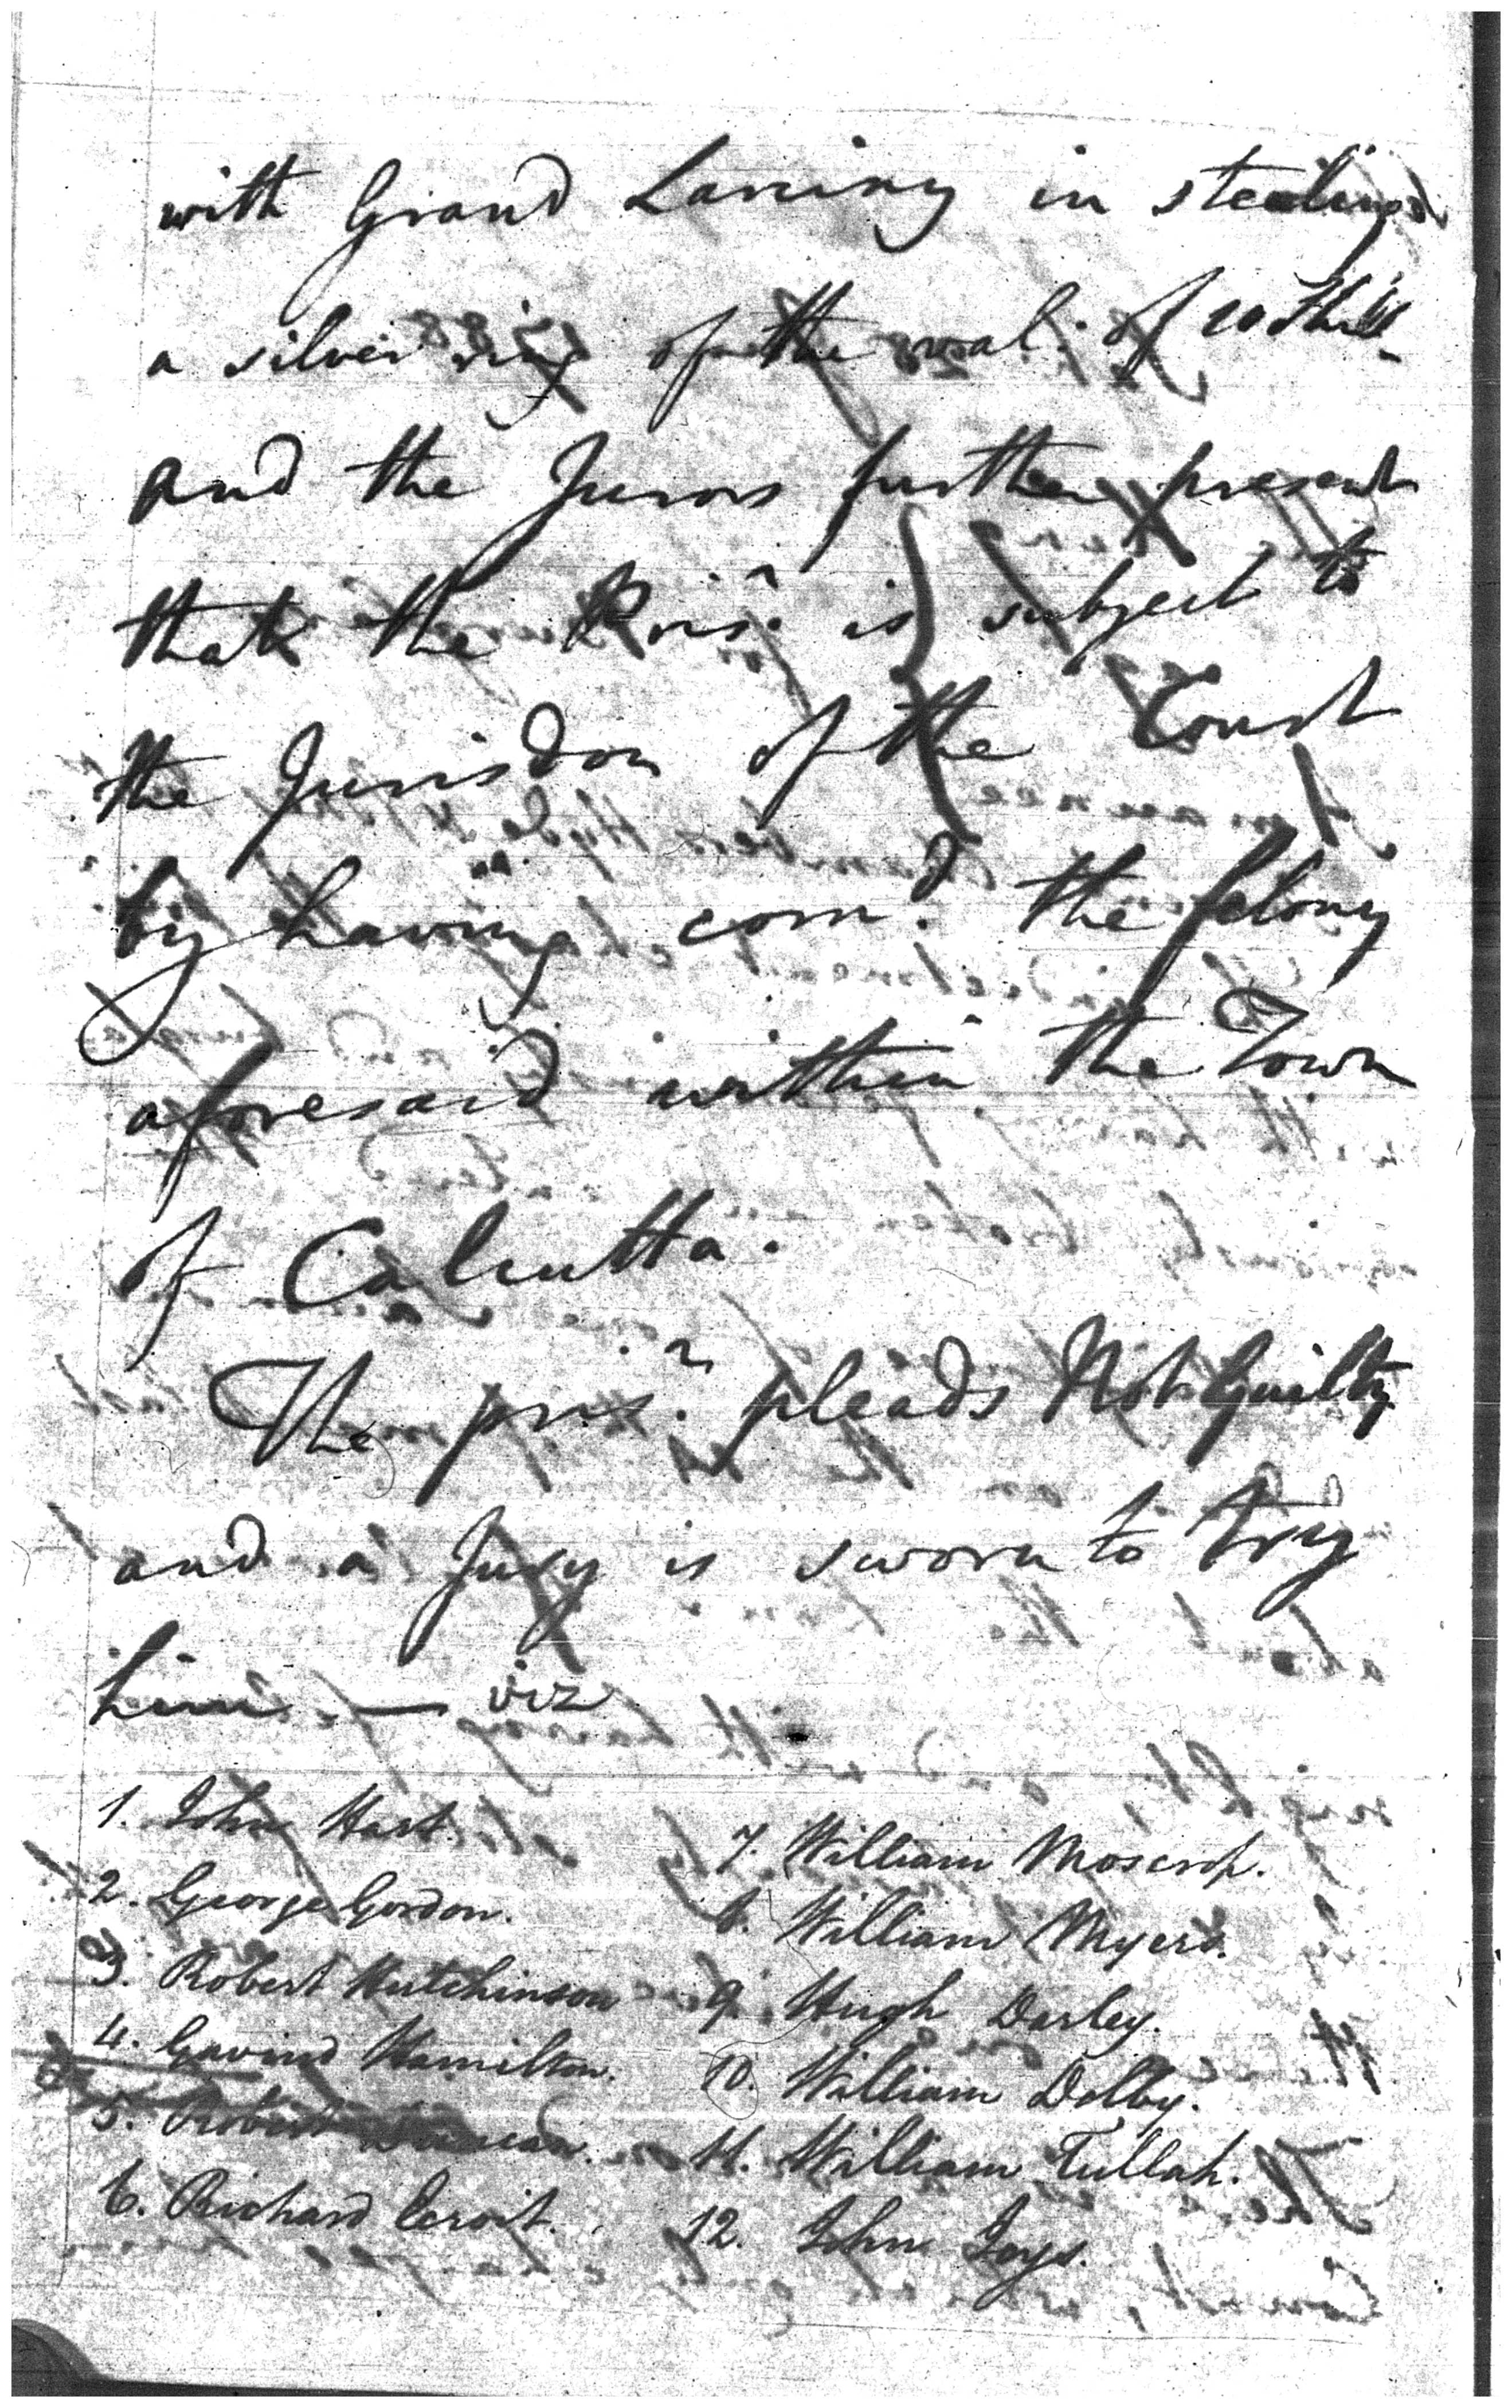 with Grand Larciny in stealing
a silver ring of the val: of 10 Shills
and the Jurors further present
that the Pris.r is subject to
the Jurisdon of the Court
by having com.d the felony
aforesaid within the Town
of Calcutta.
The pris.r pleads Not Guilty
and a Jury is sworn to try
him — viz
1. John Hart.
2. George Gordon.
3. Robert Hutchinson
4. Gavind Hamilton.
5. Robert Duncan.
6. Richard
7. William Moscrop.
8. William Myers.
9. Hugh Darley.
10. William Dolby.
11. William Tullah.
12. John Joys.